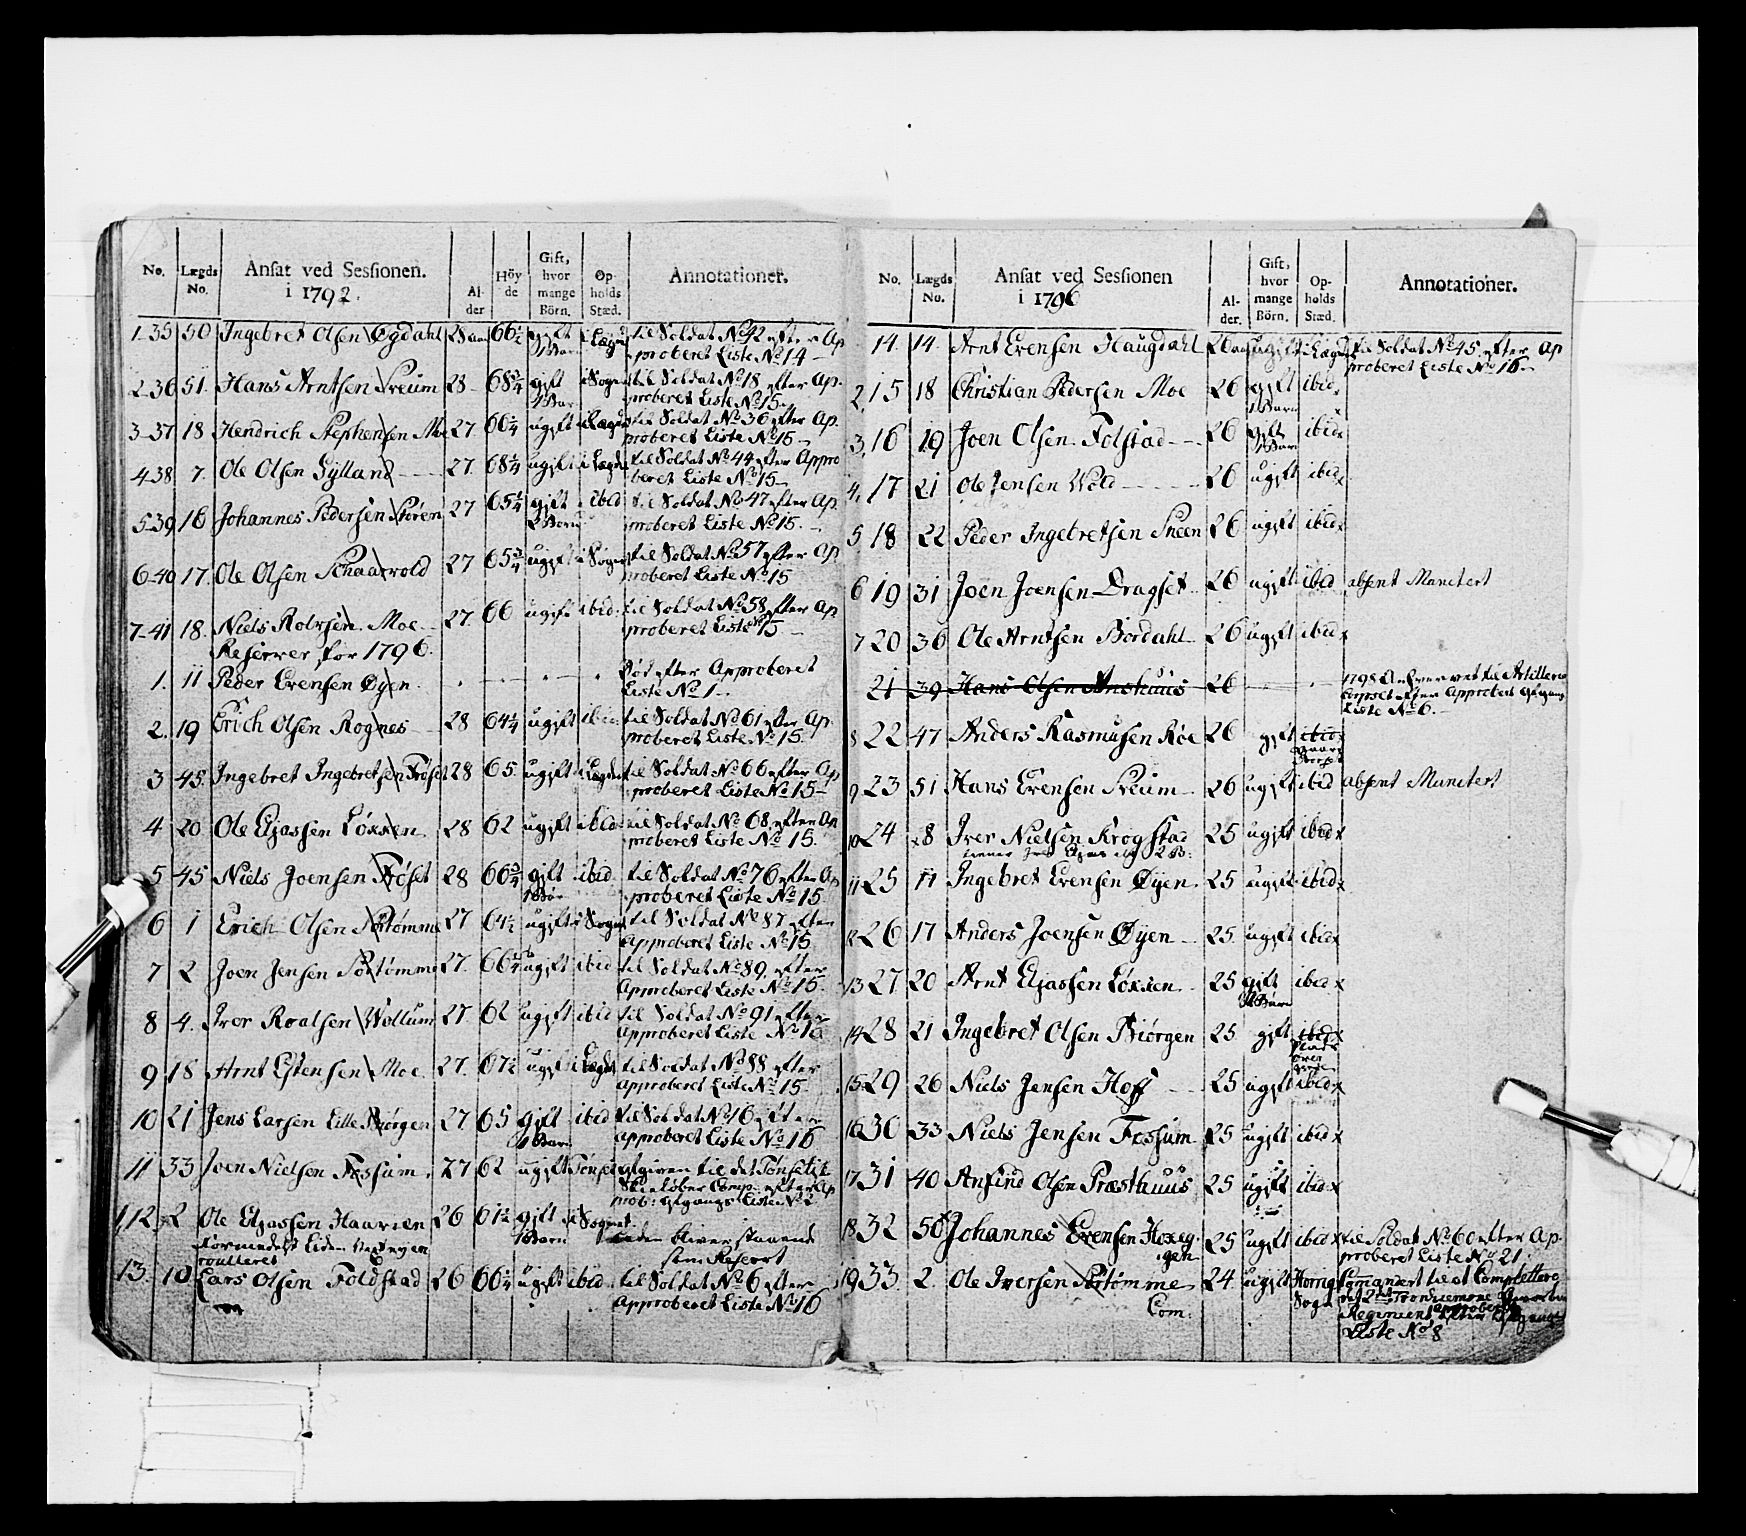 No. Lægds No. Ansat ved Sessionen. i 1792. Alder Höyde Gift, hvor mange Börn. Opholds Stæd. Annotationer.
1-35 50 Ingebret Olsen Øgdahl 28 aar 66½ gift 1 Barn i Lægd til Soldat No 42 efter Ap
proberet Liste No 14
2-36 51 Hans Arntsen Sveum 28 68¾ gift 1 Barn i Sognet til Soldat No 18 efter Ap
proberet Liste No 15
3-37 18 Hendrich Stephensen Moe 27 66¼ ugift i Lægdet til Soldat No 36 efter Ap
proberet Liste No 15
4-38 7. Ole Olsen Gylland 27. 68¼ ugift i Lægdet til Soldat No 44 efter Appro
beret Liste No 15
5-39 16 Johannes Pedersen Støren 27 65¼ gift 2 Børn ibid til Soldat No 47 efter Ap
proberet Liste No 15.
6-40 17. Ole Olsen Schaarvold 27 65¾ ugift i Sognet til Soldat No 57 efter Ap
proberet Liste No 15
7-41 18. Niels Rolvsen Moe 27 66 ugift ibid. til Soldat No 58 efter Ap
proberet Liste No 15
Reserver for 1796.
1. 11 Peder Evensen Øyen Død efter Approberet
Liste No 1
2. 19 Erich Olsen Rognes 28 64¼ ugift ibid til Soldat No 61 efter Ap
proberet Liste No 15.
3 45. Ingebret Ingebretsen Frøset 28 65 ugift i Lægdet til Soldat No 66 efter Ap
proberet Liste No 15
4 20 Ole Eljassen Løxen 28 62 ugift ibid til Soldat No 68 efter Ap
proberet Liste No 15.
5 45 Niels Joensen Frøset 28 66¾ gift 1 Bør ibid til Soldat No 76 efter Ap
proberet Liste No 15
6 1 Erich Olsen Sørtømme 27 64½ ugift i Sognet til Soldat No 87 efter
Approberet Liste No 15
7 2 Joen Jensen Sørtømme 27. 66¼ ugift ibid til Soldat No 89. efter
Approberet Liste No 15
8 4. Iver Roalsen Wollum 27 62 ugift ibid til Soldat No 91 efter
Approberet Liste No 15
9 18 Arnt Estensen Moe 27. 67½ ugift i Lægdet til Soldat No 88 efter
Approberet Liste No 15
10 21 Jens Larsen Lille Biørgen 27 65 gift 1 Barn ibid til Soldat No 16 efter
Approberet Liste No 16
11 33 Joen Nielsen Fossum 27 62 ugift Tønset afgiven til det Tønsetske
Skieløber Comp: efter Ap
prob: Afgangs Liste No 2
12 2 Ole Eljassen Haavien 26 61½ gift 1 Barn i Sognet bliver staaende
formedelst Liden
som Reserv
roulleret
13. 10 Lars Olsen Foldstad 26 66¼ ugift ibid til Soldat No 6 efter
Approberet Liste No 16
No. Lægds No. Ansat ved Sessionen i 1796 Alder. Gift, hvor mange Börn. Opholds Stæd. Annotationer.
14. 14. Arnt Evensen Haugdahl 26 aar ugift i Lægdet til Soldat No 45 efter Ap
proberet Liste No 16
2. 15 18 Christian Pedersen Moe 26 gift 1 Barn ibid x
3. 16 19 Joen Olsen Folstad 26 gift 1 Barn ibid x
4. 17 21 Ole Jensen Wold 26 ugift ibid x
5 18 22 Peder Ingebretsen Sneen 26 ugift ibid x
6 19 31 Joen Joensen Dragset 26 ugift ibid absent Munctert
7 20 36 Ole Arntsen Bordahl 26 ugift ibid x
21 39 Hans Olsen Anshuus 26 1798 til Artillerie
Corpset efter Approbert Afgangs
Liste No 6.
8 22 47 Anders Rasmusen Røe 26 gift ibid x
9 23 51 Hans Evensen Sveum 26 ugift ibid absent Munctert
10 24 8 Iver Nielsen Krogstad 25 ugift ibid x
11 25 11 Ingebret Evensen Øyen 25 ugift ibid x
12 26 17 Anders Joensen Øyen 25 ugift ibid x
13 27 20 Arnt Eljassen Løxen 25 gift Barn ibid x
14 28 21 Ingebret Olsen Biørgen 25 gift ibid
15 29 26 Niels Jensen Hoff 25 ugift ibid x
16 30 33 Niels Jensen Fossum 25 ugift ibid x
17 31 40 Anfind Olsen Præsthuus 25 ugift ibid x
18 32 50 Johannes Evensen Hoxeg
gen 25 ugift ibid x til Soldat No 60 efter Ap
proberet Liste No 21.
19 33. 2 Ole Iversen Sørtømme 24. ugift Horrigs Sogn Comandert til at Complettere
Com. det 2det Trondhiemske
Regiment efter approberet Afgangs
Liste No 8